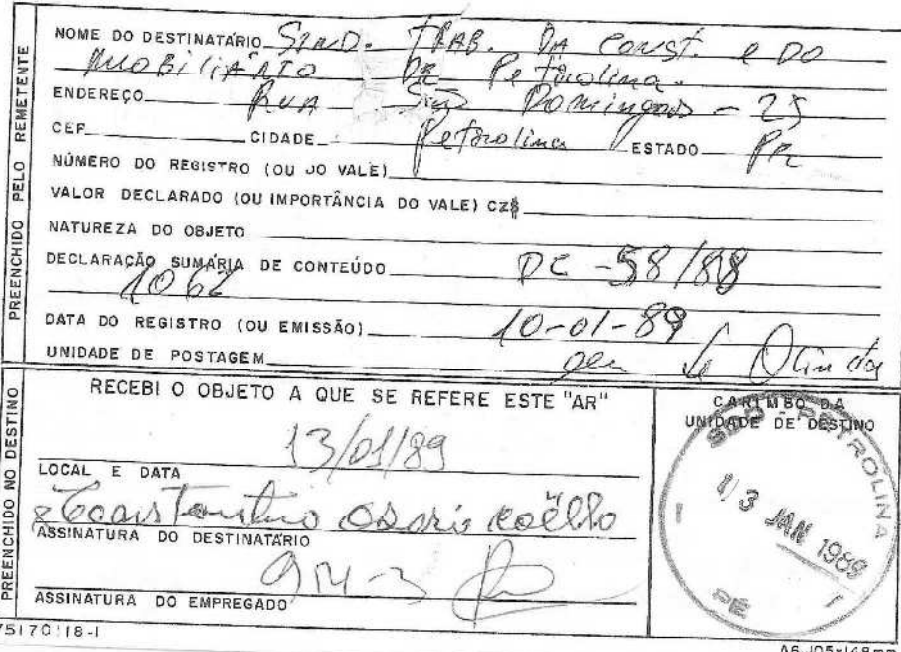 PREENCHIDO PELO REMETENTE
NOME DO DESTINATÁRIO SIND. TRAB. DA CONST. e DO
MOBILIÁRIO DE Petrolina.
ENDEREÇO RUA São Domingos - 25
CEP CIDADE Petrolina ESTADO PE
NÚMERO DO REGISTRO (OU DO VALE)
VALOR DECLARADO (OU IMPORTÂNCIA DO VALE) CZ$
NATUREZA DO OBJETO
DECLARAÇÃO SUMÁRIA DE CONTEÚDO DC - 58/88
1062
DATA DO REGISTRO (OU EMISSÃO) 10-01-89
UNIDADE DE POSTAGEM Olinda
PREENCHIDO NO DESTINO
RECEBI O OBJETO A QUE SE REFERE ESTE "AR"
13/01/89
LOCAL E DATA
Constantino Osório Coêlho
ASSINATURA DO DESTINATÁRIO
ASSINATURA DO EMPREGADO
CARIMBO DA
UNIDADE DE DESTINO
PETROLINA
13 JAN 1989
PE
75170118-1
A6-105x148mm